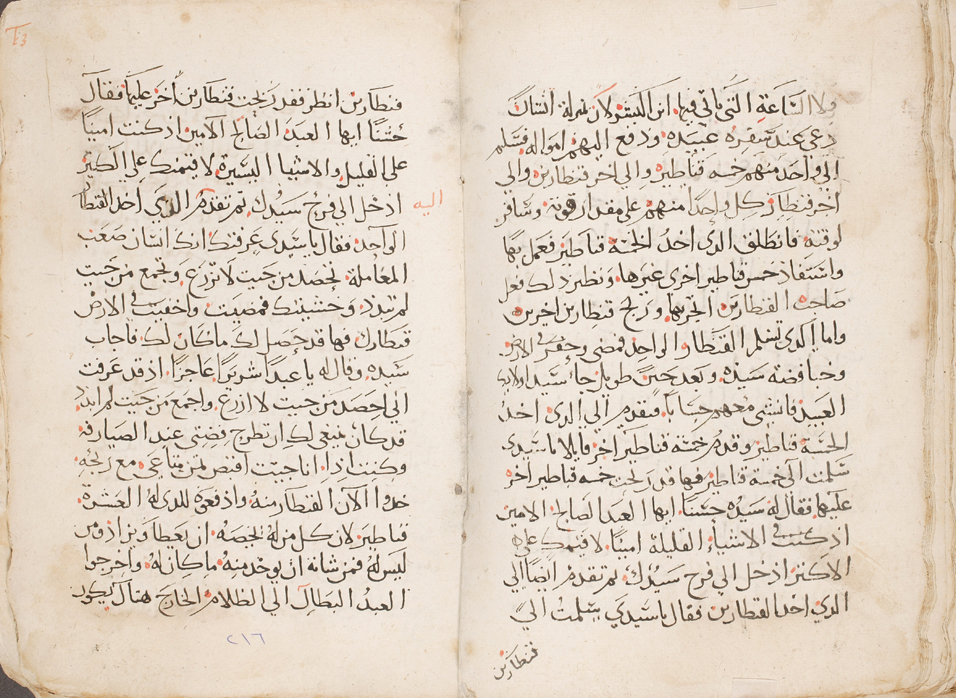 ولا الساعة التي ياتي فيها ابن البشر ولان بمنزلة انسان
دعى عند سفره عبيده ودفع اليهم امواله فسلم
الى واحد منهم خمسه قناطير والي اخر قنطارين والى
اخر قنطار كل واحدا منهم على مقدار قوته وسافر
لوقته فانطلق الدي اخد الخمسة قناطير فعمل بها
واستفاد خمس قناطير اخرى غيرها ونظير دلك فعل
صاحب القنطارين اتجر بها وربح قنطارين اخرين
واما الدي تسلم القنطار الواحد فمضى وحفر في الارض
وخبا فضة سيده وبعد حين طويل جا سيد اولايك
العبيد فانشى معهم حسابا فقدم الي الدي اخد
الخمسة قناطير وقدم خمسه قناطير اخر قايلا يا سيدي
سلمت الي خمسة قناطير فها قد ربحت خمسه قناطير اخر
عليها فقال له سيده حسنا ايها العبد الصالح الامين
اد كنت في الاشياء القليلة امينا لاقيمنك على
الاكتر ادخل الى فرح سيدك ثم تقدم ايضا الي
الدي اخد القنطارين فقال يا سيدي سلمت الي
قنطارين
قنطارين انظر فقد ربحت قنطارين أخر عليها فقال
حسنا ايها العبد الصالح الامين اد كنت امينا
على القليل والاشيا اليسيرة لاقيمنك على الكثير
ادخل الى فرح سيدك ثم تقدم الدي اخد القنطار
اليه
الواحد فقال يا سيدي عرفتك انك انسان صعب
المعاملة تحصد من حيت لا تزرع وتجمع من حيت
لم تبدر وخشيتك فمضيت واخفيت في الارض
قنطارك فها قد حصل لك ما كان لك فاجاب
سيده وقال له يا عبدا شريرا عاجزا اد قد عرفت
اني احصد من حيت لا ازرع واجمع من حيت لم ابدر
قد كان ينبغي لك ان تطرح فضتي عند الصيارفه
وكنت ادا انا جيت اقتص ثمن متاعي مع ربحه
خدوا الان القنطار منه وادفعوه للدي له العشرة
قناطير لان كل من له يخصه ان يعطا ويزاد ومن
ليس له فمن شانه ان يوخد منه ما كان له واخرجوا
العبد البطال الي الظلام الخارج هناك يكون
٢١٦